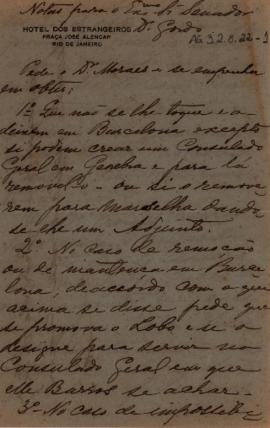 Notas para o Exmo Sr. Senador
Dr. Gordo
HOTEL DOS ESTRANGEIROS
PRAÇA JOSÉ ALENCAR
RIO DE JANEIRO
AG 32.8.22-1
Pede o Dr. Moraes e se empenha
em obter;
1º Que não se lhe toque e o
deixem em Barcelona excepto
si podem crear um Consulado
Geral em Genebra e para lá
removel-o - ou si o remove
rem para Marselha dando
se lhe um Adjunto.
2º No caso de remoção
ou de mantença em Barce
lona, de accordo com o que
acima se disse, pede que
se promova o Lobo e si o
designe para servir no
Consulado Geral em que
elle Barros se achar.
3º No caso de impossibi